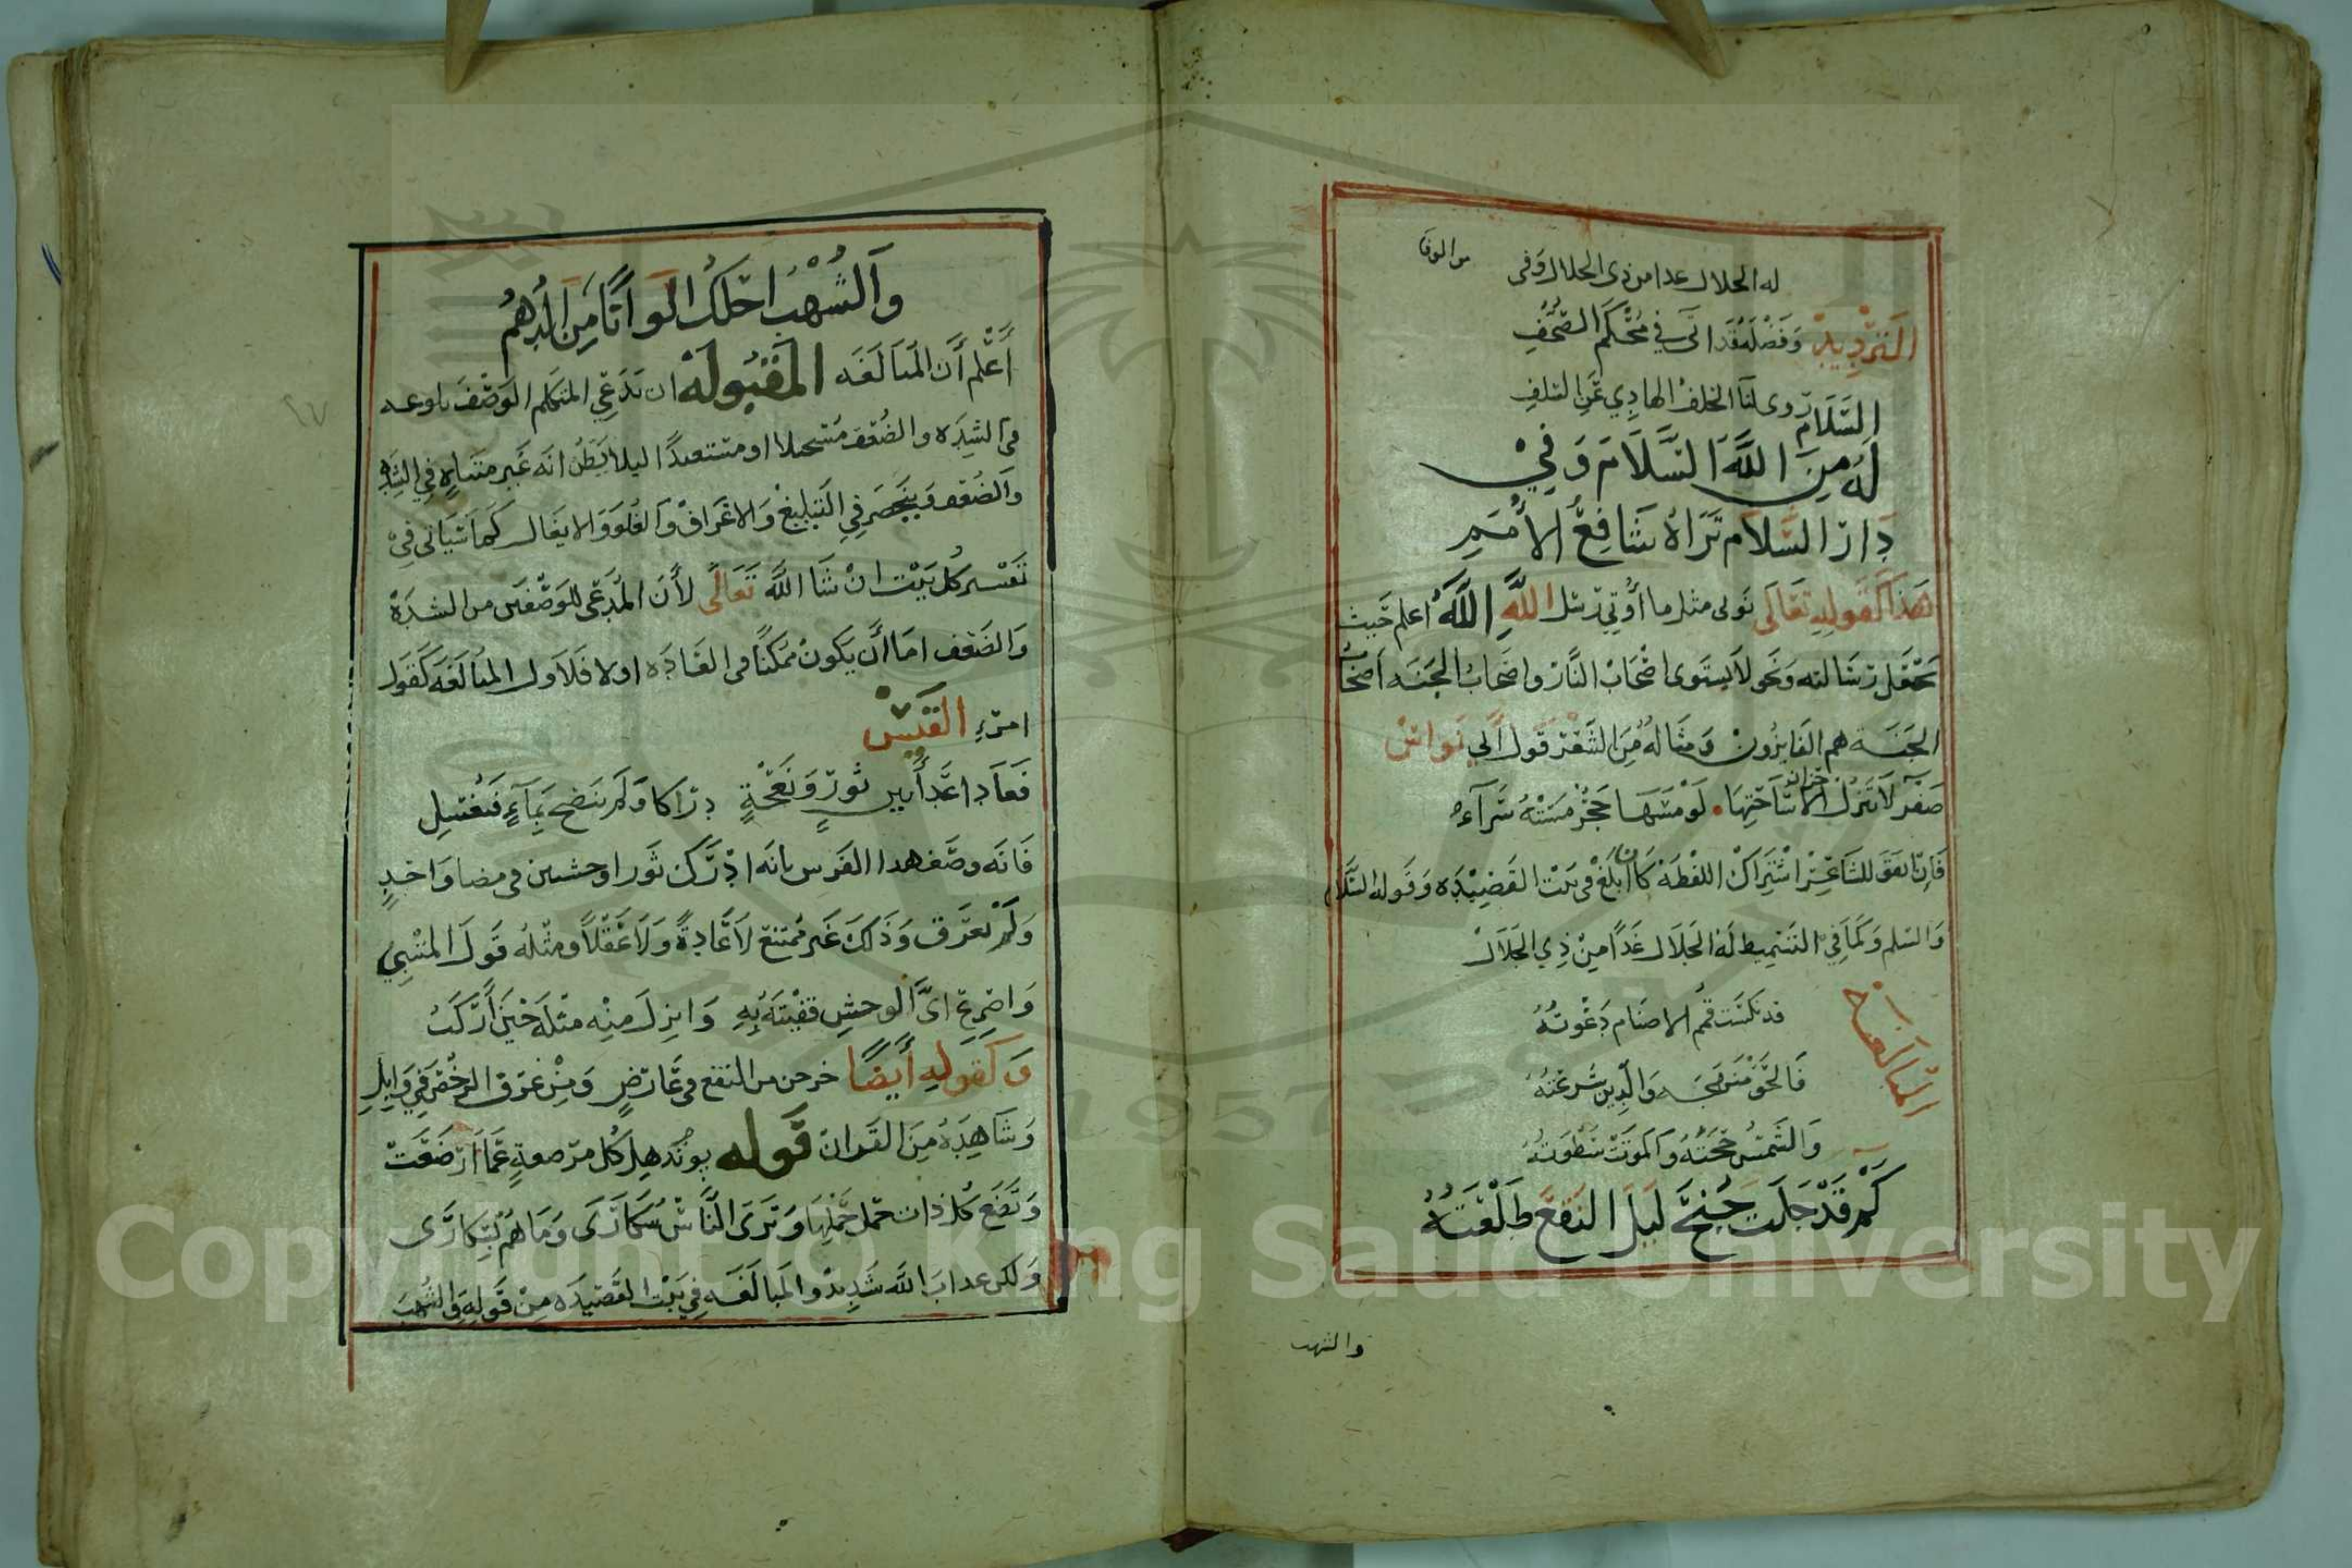 له الجلال غدا من ذي الجلال وفي من الوفا
الترديد وفضله قد اتى في محكم الصحف
السلام روى لنا الخلف الهادي عن السلف
له من الله السلام وفي
دار السلام تراه شافع الأمم
هذا كقوله تعالى نوتى مثل ما أوتي رسل الله الله اعلم حيث
يجعل رسالته ونحو لا يستوى اصحاب النار واصحاب الجنه اصحاب
الجنه هم الفايزون ومثاله من الشعر قول أبي نواس
صفر لا تنزل الاحزان ساحتها لو مسها حجر مسته سرآء
فان اتفق للشاعر اشتراك اللفظه كان ابلغ في بيت القصيده وقوله السلام
والسلم وكما في التسميط له الجلال غدا من ذي الجلال
المبالغه
قد نكست قمم الاصنام دعوته
فالحق منهجه والدين شرعته
والشمس حجته والموت سطوته
كم قد جلت جنح ليل النقع طلعته
والشهب
والشهب احلك الوانا من الدهم
أعلم أن المبالغه المقبوله ان يدعي المتكلم الوصف بلوغه
في الشده والضعف مستحيلا او مستبعدا ليلا يظن انه غير متناه في الشده
والضعف وينحصر في التبليغ والاغراق والغلو والايغال كما سياتي في
تفسير كل بيت ان شا الله تعالى لأن المدعى للوصفين من الشدة
والضعف اما أن يكون ممكنا في العاده او لا فلاول المبالغه كقول
امرء القيس
فعادا عدآ بين ثور ونعجة دراكا ولم ينضح بمآء فيغسل
فانه وصف هدا الفرس بانه ادرك ثورا وحشين في مضما واحد
ولم يعرق وذلك غير ممتنع لا عادة ولا عقلا ومثله قول المتنبي
واضرع اى الوحش قفيته به وانزل منه مثله حين أركب
وكقوله أيضا خرجن من النقع في عارض ومن عرق الركض في وابل
وشاهده من القران قوله يوم تدهل كل مرضعة عما ارضعت
وتضع كل ذات حمل حملها وترى الناس سكارى وما هم بسكارى
ولكن عداب الله شديد والمبالغه في بيت القصيده من قوله والشهب
Copyright © King Saud University
1957